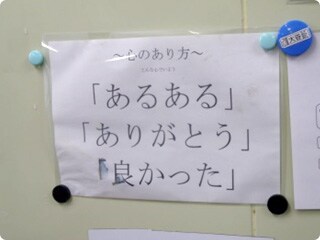 ～心のあり方～
「あるある」
「ありがとう」
「良かった」